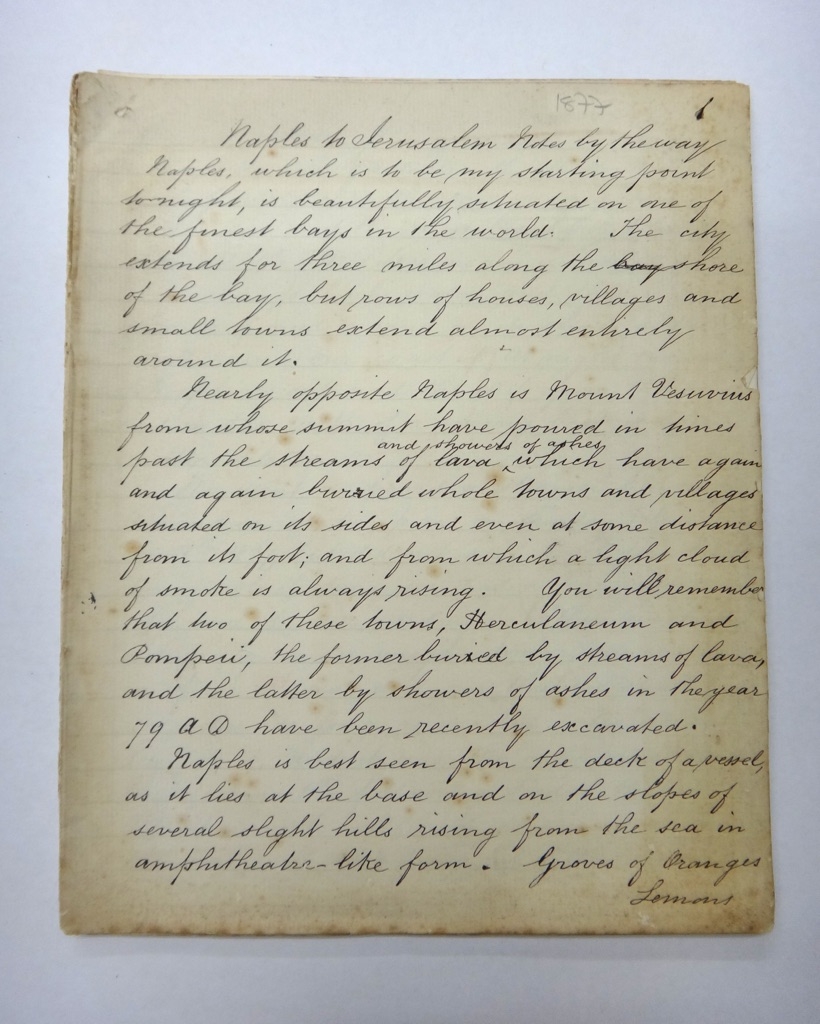 1877
1
Naples to Jerusalem Notes by the way
Naples, which is to be my starting point
to-night, is beautifully situated on one of
the finest bays in the world. The city
extends for three miles along the bay shore
of the bay, but rows of houses, villages and
small towns extend almost entirely
around it.
Nearly opposite Naples is Mount Vesuvius
from whose summit have poured in times
and showers of ashes
past the streams of lava which have again
and again burried whole towns and villages
situated on its sides and even at some distance
from its foot; and from which a light cloud
of smoke is always rising. You will remember
that two of these towns, Herculaneum and
Pompeii, the former buried by streams of lava,
and the latter by showers of ashes in the year
79 A D have been recently excavated.
Naples is best seen from the deck of a vessel,
as it lies at the base and on the slopes of
several slight hills rising from the sea in
amphitheatre-like form. Groves of Oranges
Lemons